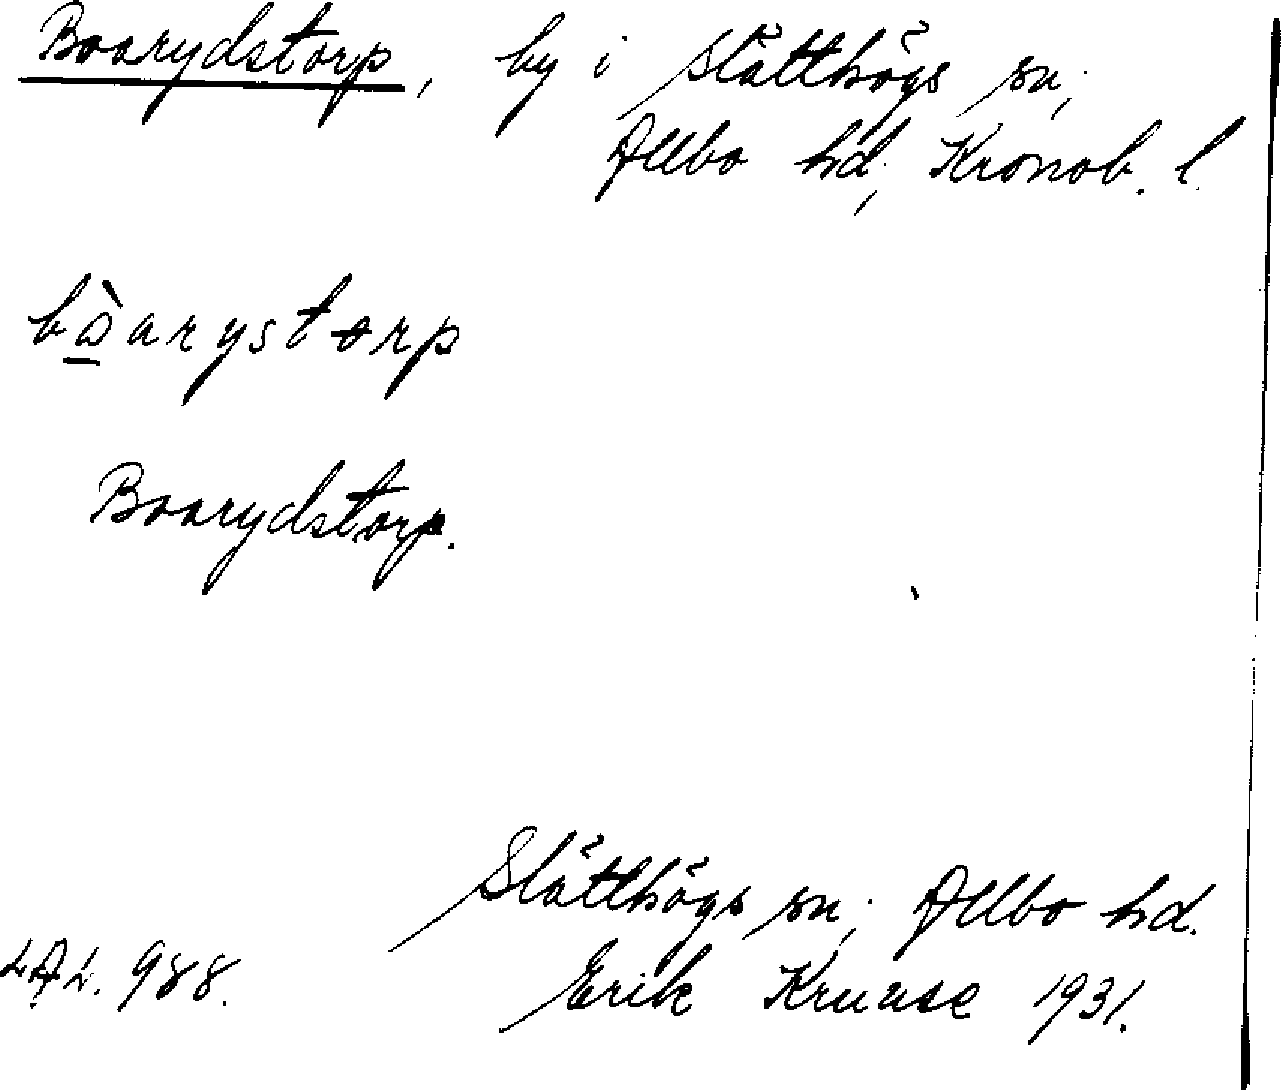 Boarydstorp, by i Slätthögs sn;
Allbo hd; Kronob. l.
bò̲arystorp
Boarydstorp.
Slätthögs sn; Allbo hd.
LAL. 988. Erik Kruuse 1931.